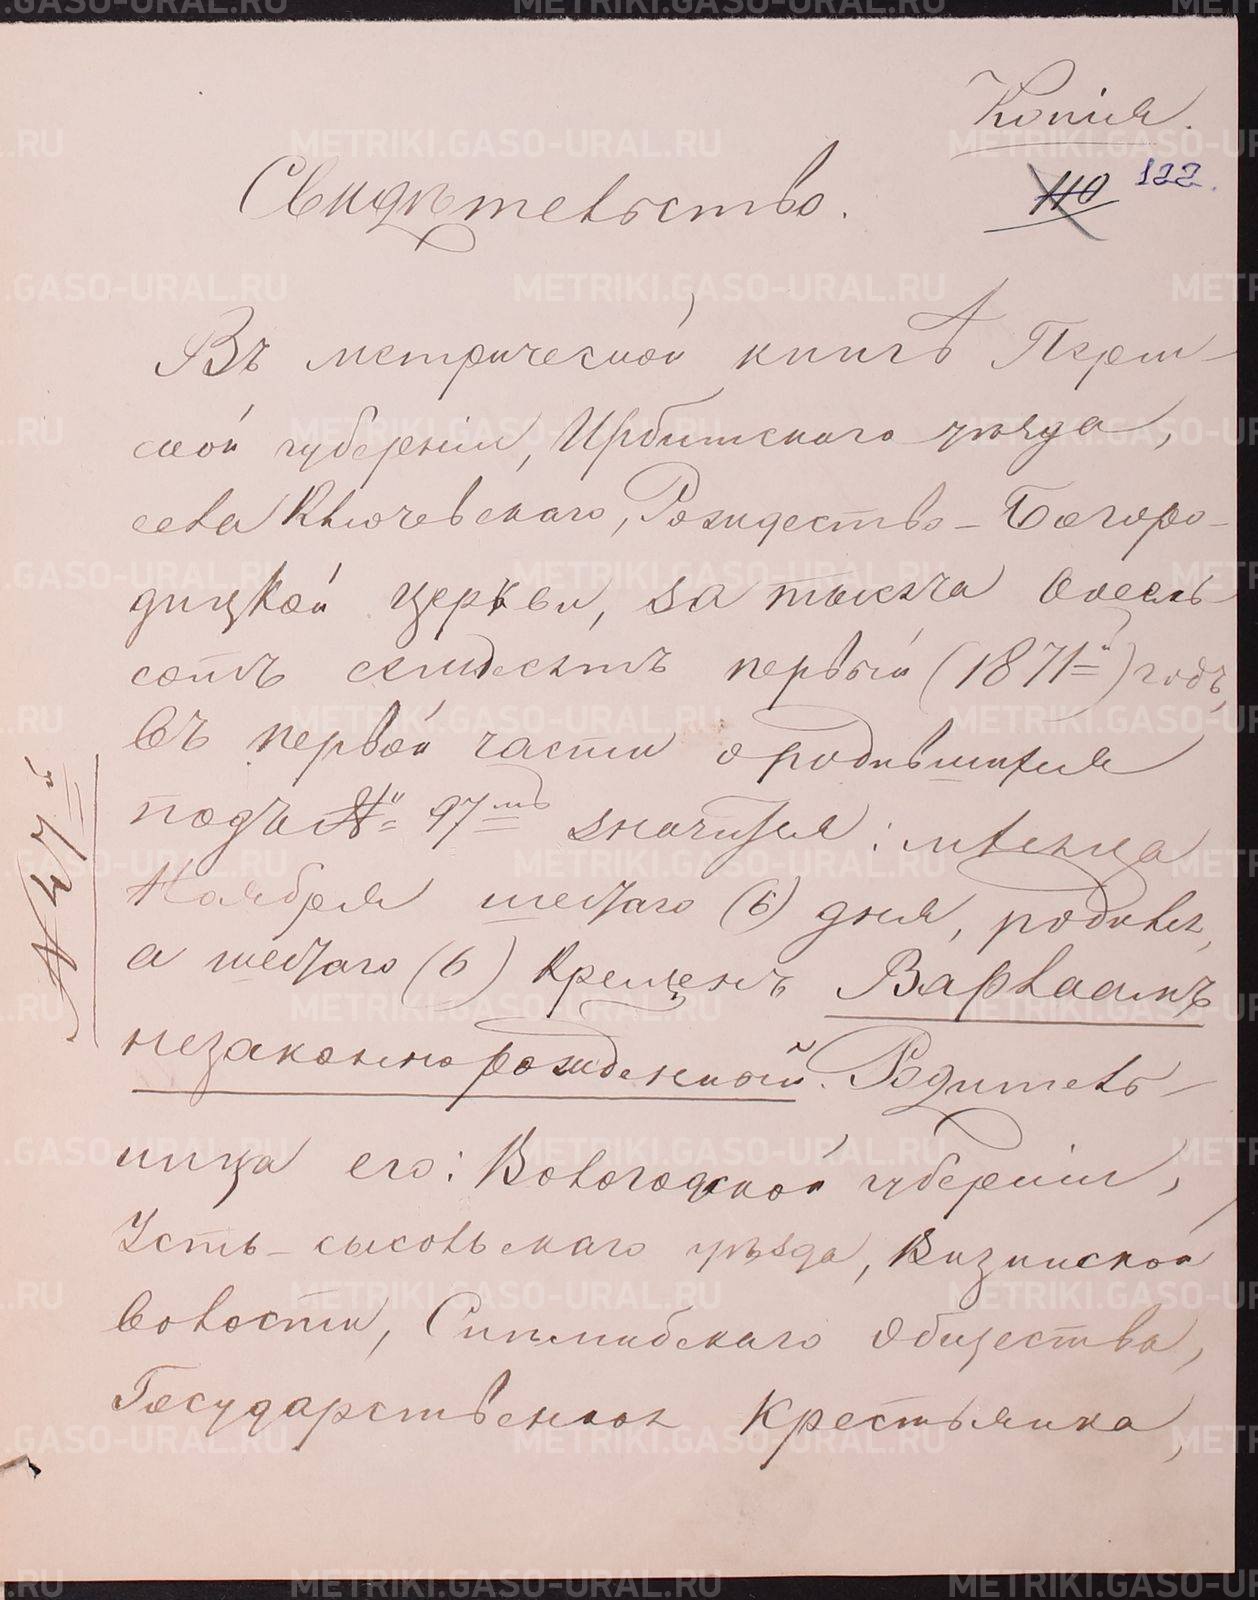 Копія.
110 122.
Свидѣтельство.
Въ метрической книгѣ Перм-
ской губерніи, Ирбитскаго уѣзда,
села Ключевскаго, Рождество-Богоро-
дицкой церкви, за тысяча восемь
сотъ семьдесятъ первый (1871й) годъ,
въ первой части о родившихся
подъ № 97мъ значится: мѣсяца
Ноября шестаго (6) дня, родился,
а шестаго (6) крещенъ Варлаамъ
незаконнорожденный. Родитель-
ница его: Вологодской губерніи,
Усть-сысольскаго уѣзда, Визинской
волости, общества,
Государственная крестьянка,
№ 47й
METRIKI.GASO-URAL.RU